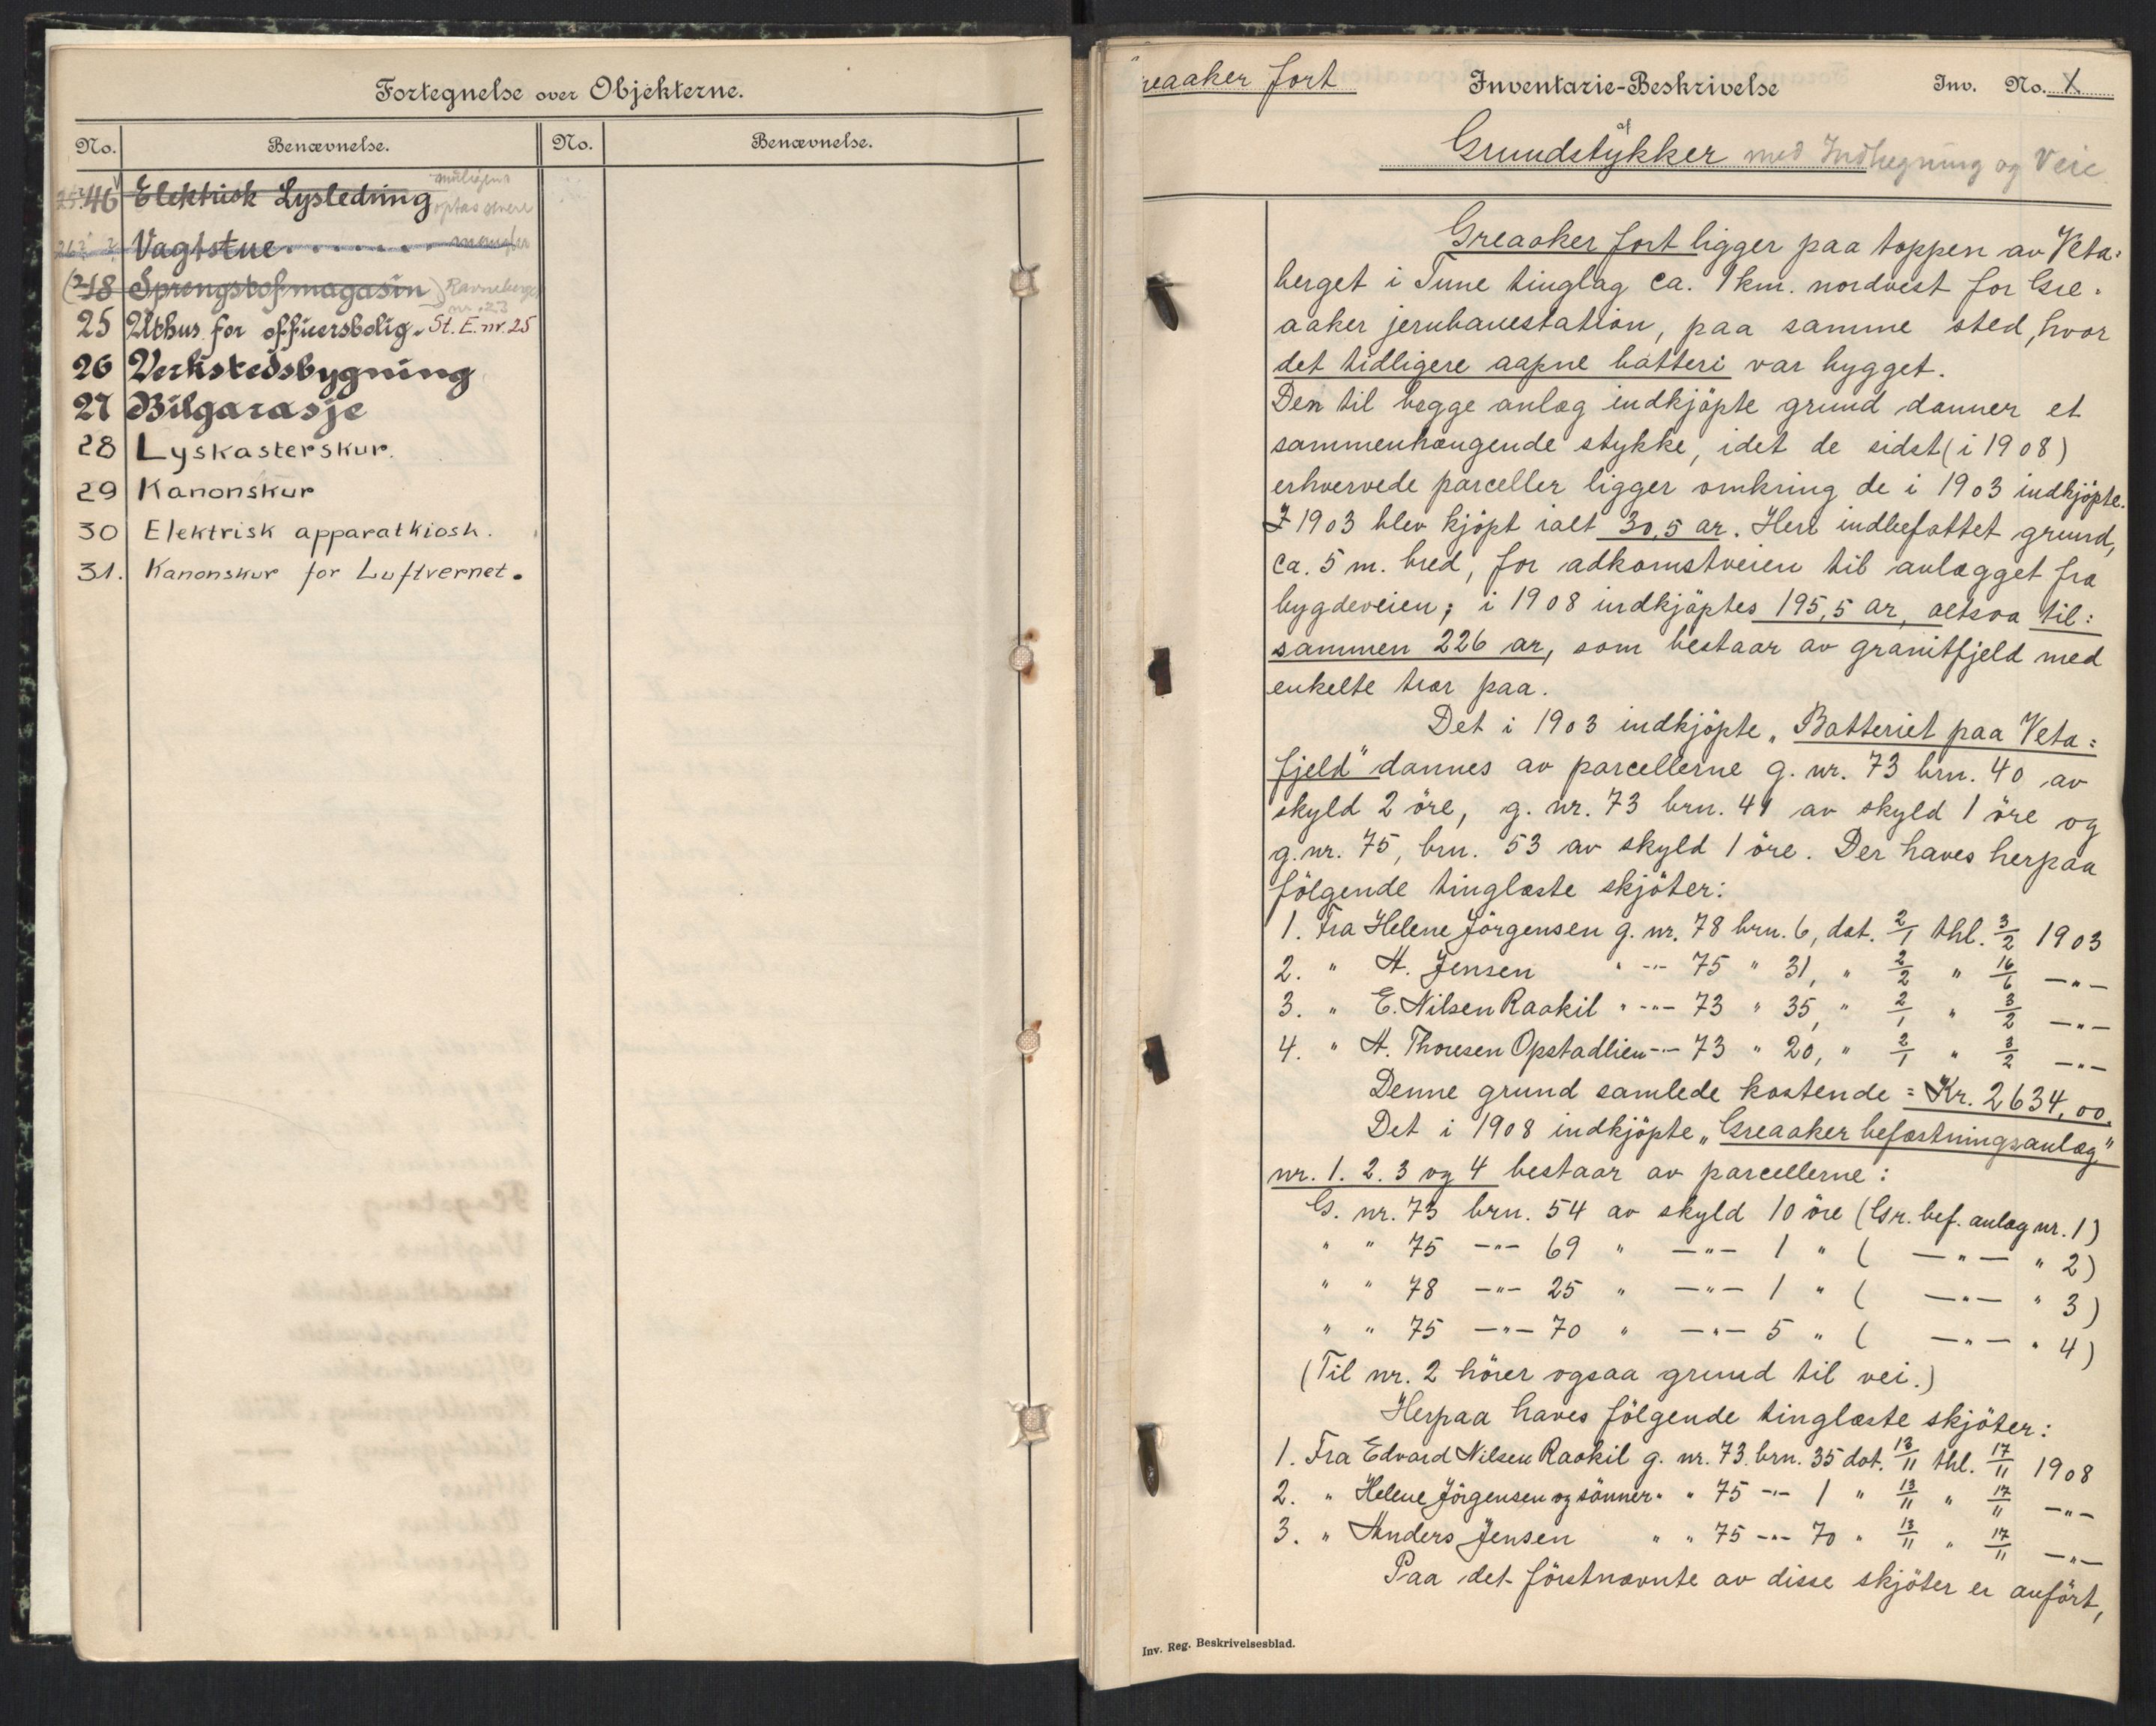 Fortegnelse over Objekterne.
No. Benævnelse. No. Benævnelse.
46 Elektrisk Lysledning
Vagtstue . . . . . . . mangler
18 Sprengstofmagasin) Ravneberget
25 Uthus for officersbolig. St. E. nr. 25
26 Verkstedsbygning
27 Bilgarasje
28 Lyskasterskur.
29 Kanonskur
30 Elektrisk apparatkiosk.
31. Kanonskur for Luftvernet.
reaaker fort Inventarie-Beskrivelse Inv. No. X
af
Grundstykker med Indhegning og Veie
Greaaker fort ligger paa toppen av Veta=
berget i Tune tinglag ca. 1 km. nordvest for Gre=
aaker jernbanestation, paa samme sted, hvor
det tidligere aapne batteri var bygget.
Den til begge anlæg indkjöpte grund danner et
sammenhængende stykke, idet de sidst (i 1908)
erhvervede parceller ligger omkring de i 1903 indkjöpte.
I 1903 blev kjöpt ialt 30,5 ar. Heri indbefattet grund,
ca. 5 m. bred, for adkomstveien til anlægget fra
bygdeveien; i 1908 indkjöptes 195,5 ar, altsaa til=
sammen 226 ar, som bestaar av granitfjeld med
enkelte trær paa.
Det i 1903 indkjöpte „Batteriet paa Veta=
fjeld" dannes av parcellerne g. nr. 73 brn. 40 av
skyld 2 öre, g. nr. 73 brn. 41 av skyld 1 öre og
g. nr. 75, brn. 53 av skyld 1 öre. Der haves herpaa
fölgende tinglæste skjöter:
1. Fra Helene Jörgensen g. nr. 78 brn. 6, dat. 2/1 thl. 3/2 1903
2. " A. Jensen " -"- 75 " 31, " 2/2 " 16/6 -"-
3. " E. Nilsen Raakil " -"- 73 " 35, " 2/1 " 3/2 -"-
4. " A. Thoresen Opstadlien -"- 73 " 20, " 2/1 " 3/2 -"-
Denne grund samlede kostende = Kr. 2634,00.
Det i 1908 indkjöpte „Greaaker befæstningsanlæg"
nr. 1. 2. 3 og 4 bestaar av parcellerne:
G. nr. 73 brn. 54 av skyld 10 öre (Gr. bef. anlæg nr. 1)
" " 75 -"- 69 " -"- 1 " ( -"- " 2)
" " 78 -"- 25 " -"- 1 " ( -"- " 3)
" " 75 -"- 70 " -"- 5 " ( -"- " 4)
(Til nr. 2 hörer ogsaa grund til vei.)
Herpaa haves fölgende tinglæste skjöter:
1. Fra Edvard Nilsen Raakil g. nr. 73. brn. 35 dat. 13/11 thl. 17/11 1908
2. " Helene Jörgensen og sönner " " 75 -"- 1 " 13/11 " 17/11 -"-
3. " Anders Jensen " " 75 -"- 70 " 13/11 " 17/11 -"-
Paa det förstnævnte av disse skjöter er anfört,
Inv. Reg. Beskrivelsesblad.